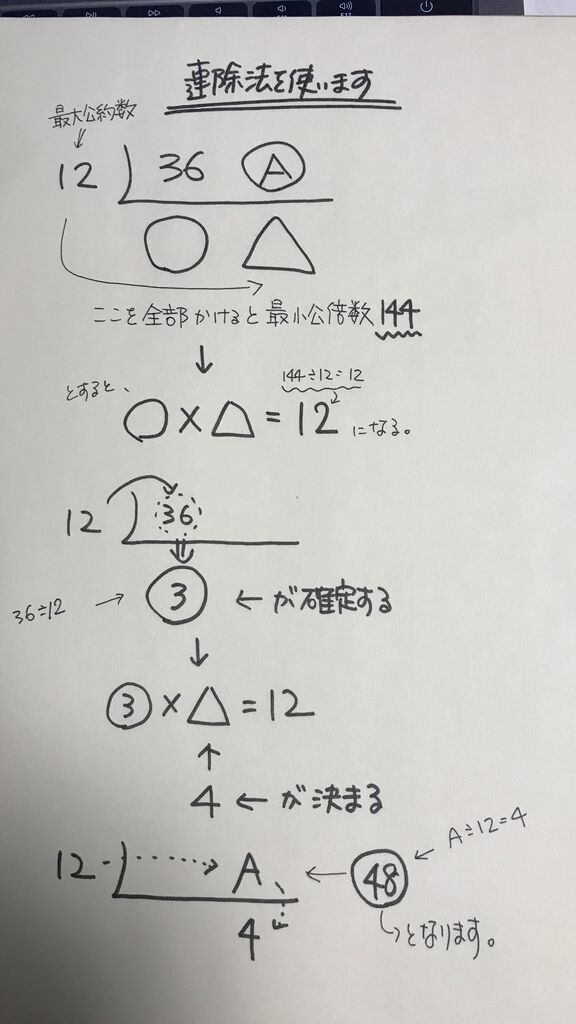 連除法を使います
最大公約数
12 36 A
ここを全部かけると最小公倍数144
144÷12=12
とすると、
○×△=12になる。
12 36
36÷12 → 3 ← が確定する
③×△=12
4 ← が決まる
A÷12=4
12 A ← 48
4 となります。